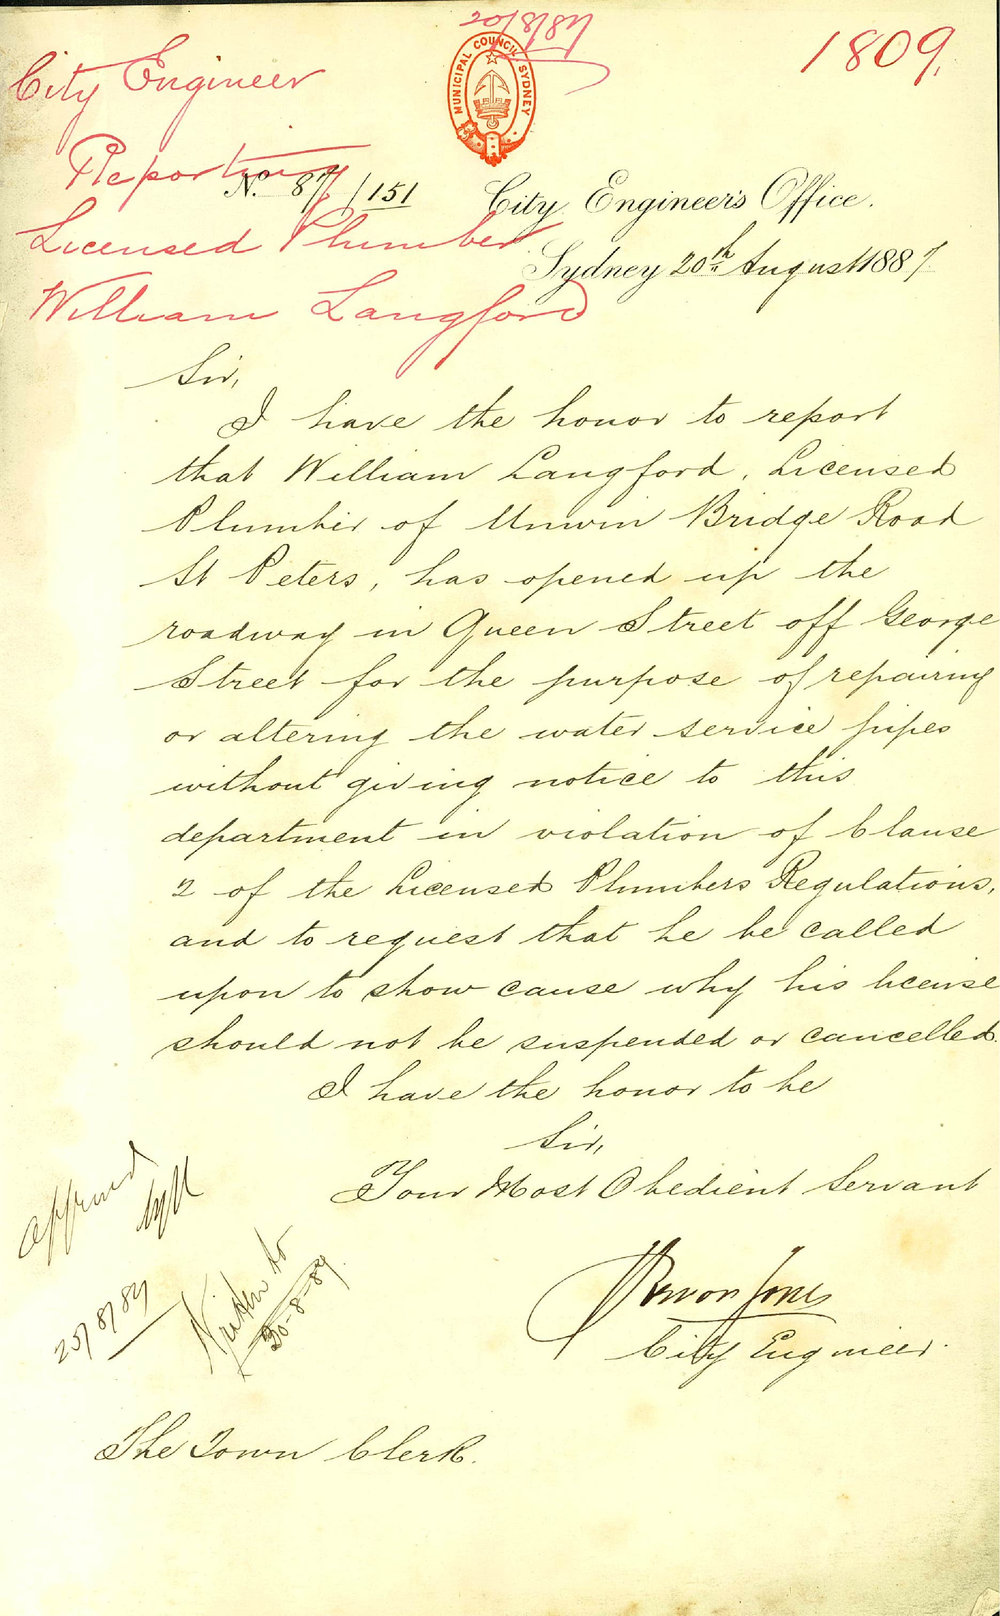 20/8/87
1809.
MUNICIPAL COUNCIL SYDNEY
City Engineer
Reporting
Licensed Plumber
William Langford
No. 87/151
City Engineer's Office.
Sydney 20th August 1887
Sir,
I have the honor to report
that William Langford, Licensed
Plumber of Unwin Bridge Road
St Peters, has opened up the
roadway in Queen Street off George
Street for the purpose of repairing
or altering the water service pipes
without giving notice to this
department in violation of Clause
2 of the Licensed Plumbers Regulations,
and to request that he be called
upon to show cause why his license
should not be suspended or cancelled.
I have the honor to be
Sir,
Your Most Obedient Servant
Jones
City Engineer.
Approved
Written to
The Town Clerk.